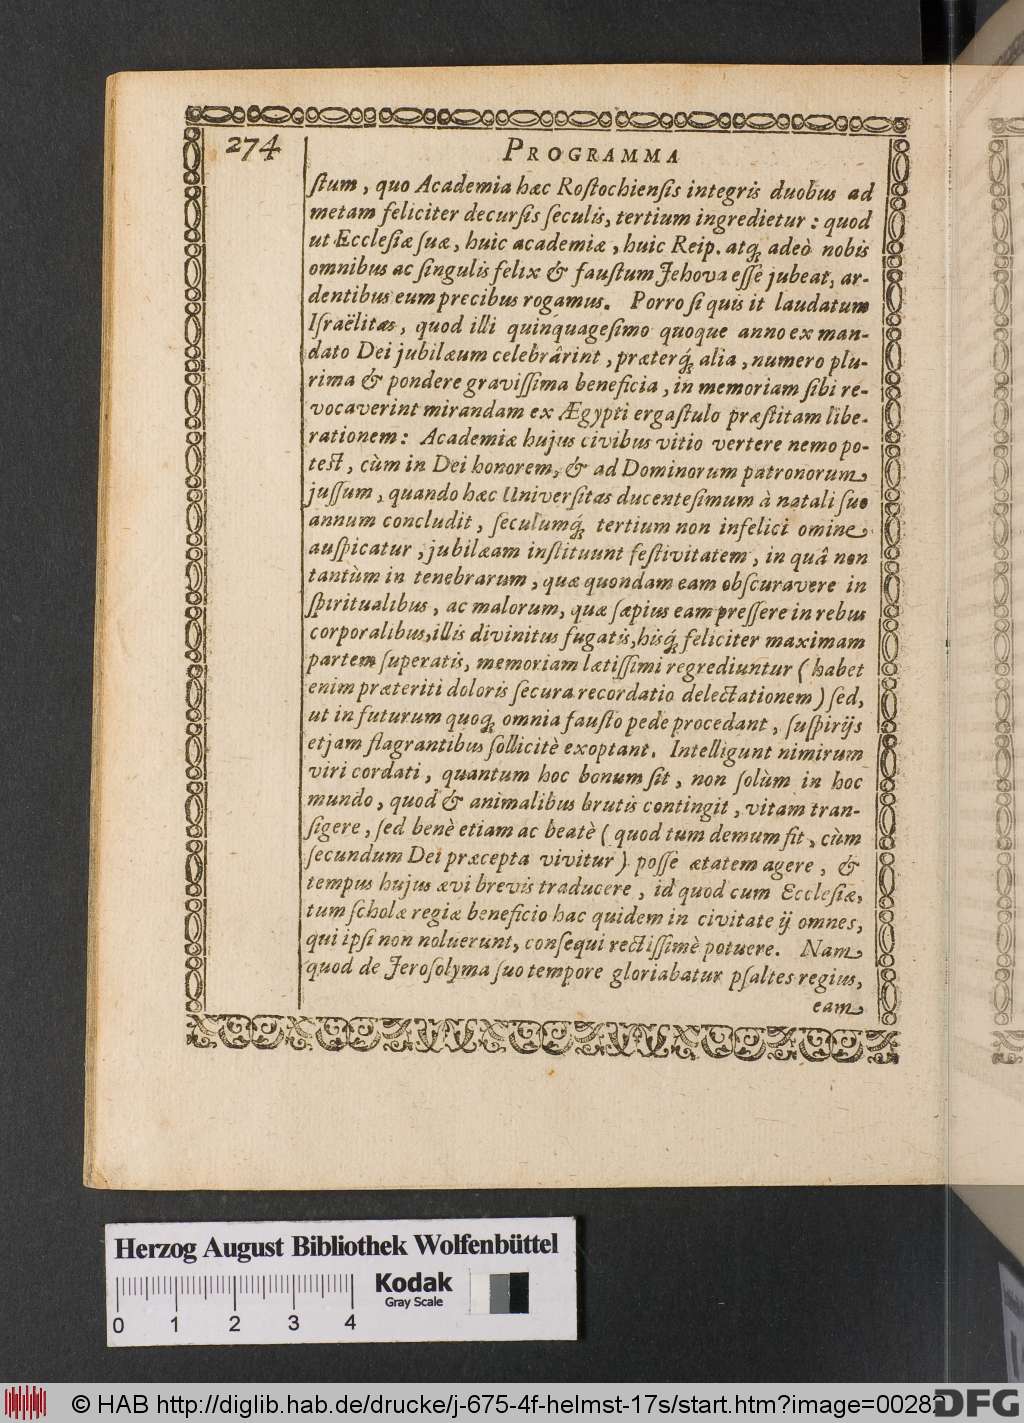 274
PROGRAMMA
ſtum, quo Academia hæc Roſtochienſis integris duobus ad
metam feliciter decurſis ſeculis, tertium ingredietur: quod
ut Eccleſiæ ſuæ, huic academiæ, huic Reip. atq́; adeò nobis
omnibus ac ſingulis felix & fauſtum Jehova eſſe jubeat, ar-
dentibus eum precibus rogamus. Porro ſi quis it laudatum
Iſraëlitas, quod illi quinquageſimo quoque anno ex man-
dato Dei jubilæum celebrârint, præterq́; alia, numero plu-
rima & pondere graviſſima beneficia, in memoriam ſibi re-
vocaverint mirandam ex Ægypti ergaſtulo præſtitam libe-
rationem: Academiæ hujus civibus vitio vertere nemo po-
test, cùm in Dei honorem, & ad Dominorum patronorum
juſſum, quando hæc Univerſitas ducenteſimum à natali ſuo
annum concludit, ſeculumq́; tertium non infelici omine
auſpicatur, jubilæam inſtituunt feſtivitatem, in quâ non
tantùm in tenebrarum, quæ quondam eam obſcuravere in
ſpiritualibus, ac malorum, quæ ſæpius eam preſſere in rebus
corporalibus, illis divinitus fugatis, hisq́; feliciter maximam
partem ſuperatis, memoriam lætiſſimi regrediuntur (habet
enim præteriti doloris ſecura recordatio delectationem) ſed,
ut in futurum quoq; omnia fauſto pede procedant, ſuſpirijs
etjam flagrantibus ſollicitè exoptant. Intelligunt nimirum
viri cordati, quantum hoc bonum ſit, non ſolùm in hoc
mundo, quod & animalibus brutis contingit, vitam tran-
ſigere, ſed benè etiam ac beatè (quod tum demum fit, cùm
ſecundum Dei præcepta vivitur) poſſe ætatem agere, &
tempus hujus ævi brevis traducere, id quod cum Eccleſiæ,
tum ſcholæ regiæ beneficio hac quidem in civitate ij omnes,
qui ipſi non noluerunt, conſequi rectiſſimè potuere. Nam
quod de Jeroſolyma ſuo tempore gloriabatur pſaltes regius,
eam
Herzog August Bibliothek Wolfenbüttel
Kodak
Gray Scale
0 1 2 3 4
© HAB http://diglib.hab.de/drucke/j-675-4f-helmst-17s/start.htm?image=00282
DFG